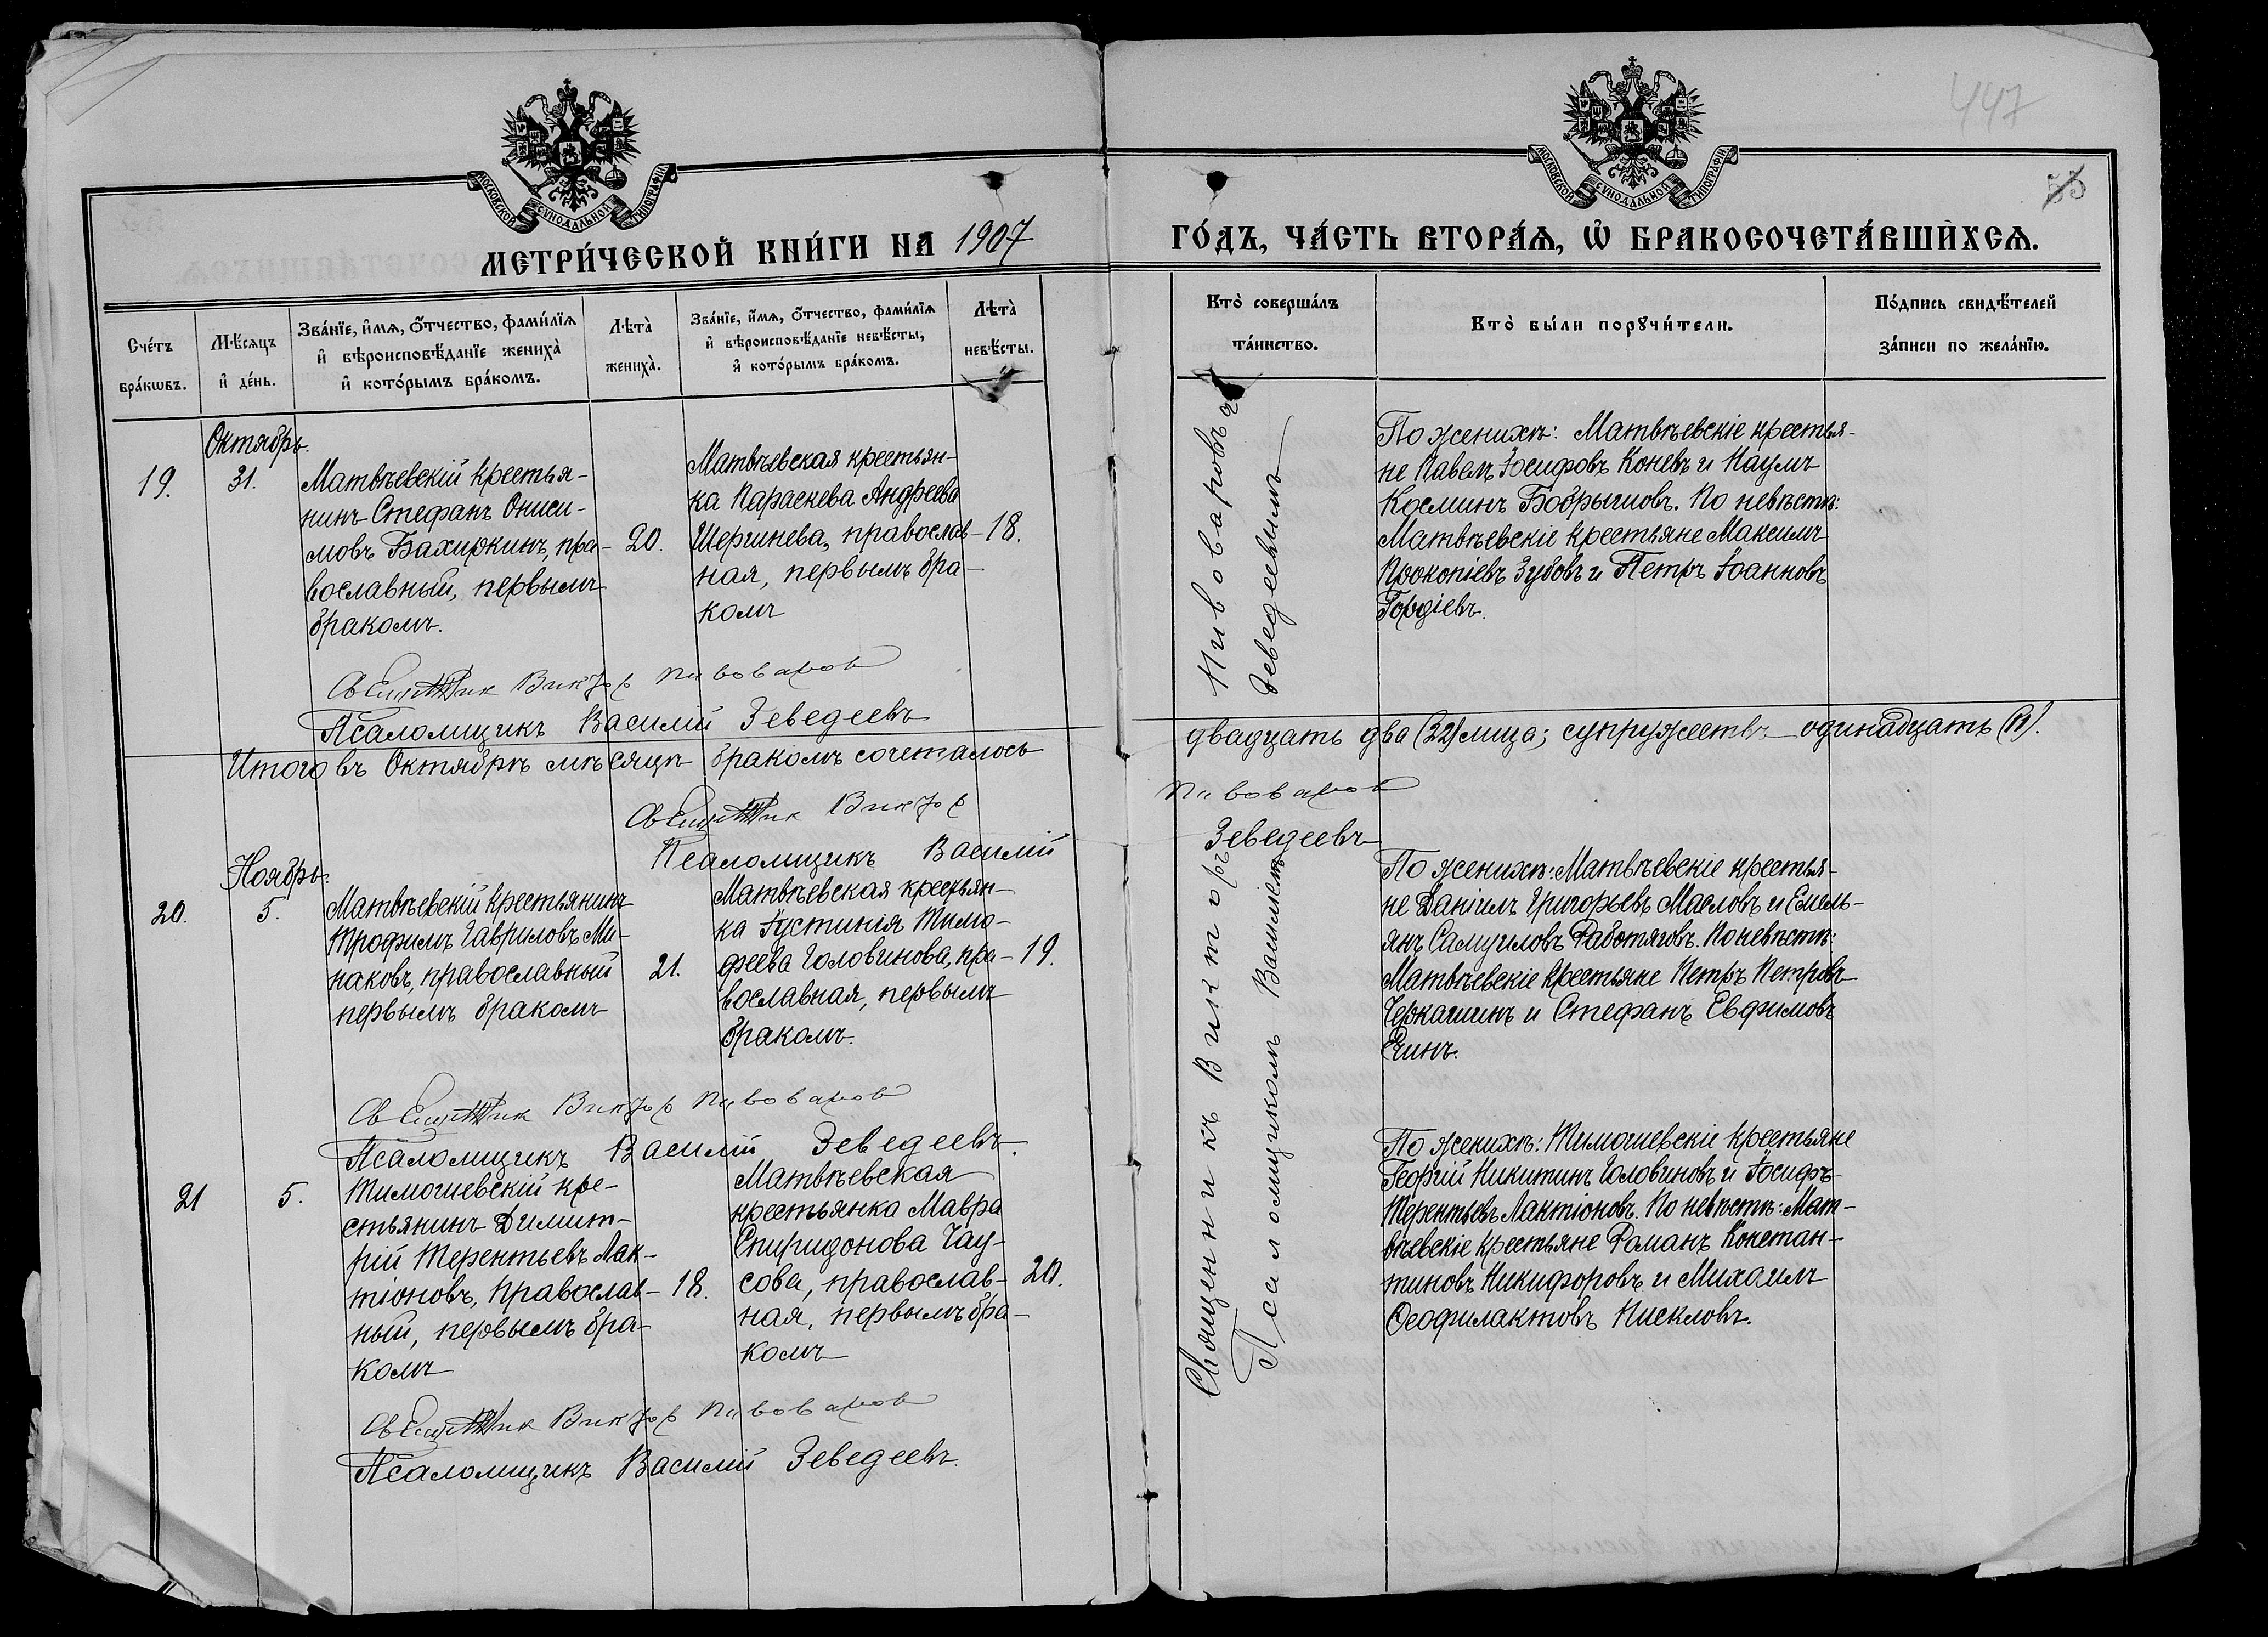 447
55
МОСКОВСКОЙ СУНОДАЛЬНОЙ ТИПОГРАФІИ
МОСКОВСКОЙ СУНОДАЛЬНОЙ ТИПОГРАФІИ
МЕТРИ́ЧЕСКОЙ КНИ́ГИ НА 1907
ГО́ДЪ, ЧА́СТЬ ВТОРА́Ѧ, Ѡ БРАКОСОЧЕТА́ВШИХСѦ.
Сче́тъ бра́кѡвъ.
Мѣ́сяцъ и де́нь.
Зва́нїе, и́мѧ, ѻ́тчество, фами́лїѧ
и вѣроисповѣ́данїе жениха̀
и кото́рымъ бра́комъ.
Лѣта̀
жениха̀.
Зва́нїе, и́мѧ, ѻ́тчество, фами́лїѧ
и вѣроисповѣ́данїе невѣ́сты,
и кото́рымъ бра́комъ.
Лѣта̀
невѣ́сты.
Кто̀ соверша́лъ
та́инство.
Кто̀ бы́ли порꙋчи́тели.
По́дпись свидѣ́телей
за́писи по жела́нїю.
Октябрь.
19.
31.
Матвѣевскій крестья-
нинъ Стефанъ Ониси-
мовъ Бахиркинъ, пра-
вославный, первымъ
бракомъ.
20.
Матвѣевская крестьян-
ка Параскева Андреева
Шершнева, православ-
ная, первымъ бра-
комъ
18.
Священник Виктор Пивоваров
Псаломщикъ Василій Зеведеевъ
По женихѣ: Матвѣевскіе крестья-
не Павелъ Іосифовъ Коневъ и Наумъ
Косминъ Бобрышовъ. По невѣстѣ:
Матвѣевскіе крестьяне Максимъ
Прокопіевъ Зубовъ и Петръ Іоанновъ
Гордіевъ.
Итого въ Октябрѣ мѣсяцѣ бракомъ сочеталось
двадцать два (22) лица; супружествъ одинадцать (11).
Священник Виктор
Пивоваров
Псаломщикъ Василій
Зеведеевъ
Ноябрь.
20.
5.
Матвѣевскій крестьянинъ
Трофимъ Гавриловъ Ми-
наковъ, православный
первымъ бракомъ
21.
Матвѣевская крестьян-
ка Іустинія Тимо-
феева Головинова, пра-
вославная, первымъ
бракомъ.
19.
Священник Виктор Пивоваров
Псаломщикъ Василій Зеведеевъ.
По женихѣ: Матвѣевскіе крестья-
не Даніилъ Григорьевъ Масловъ и Емель-
янъ Самуиловъ Работяговъ. По невѣстѣ:
Матвѣевскіе крестьяне Петръ Петровъ
Черкашинъ и Стефанъ Евфимовъ
Ечинъ.
21
5.
Тимошевскій кре-
стьянинъ Димит-
рій Терентьевъ Лак-
тіоновъ, православ-
ный, первымъ бра-
комъ
18.
Матвѣевская
крестьянка Мавра
Спиридонова Чау-
сова, православ-
ная, первымъ бра-
комъ
20.
Священник Виктор Пивоваров
Псаломщикъ Василій Зеведеевъ.
По женихѣ: Тимошевскіе крестьяне
Георгій Никитинъ Головиновъ и Іосифъ
Терентьевъ Лактіоновъ. По невѣстѣ: Мат-
вѣевскіе крестьяне Романъ Констан-
тиновъ Никифоровъ и Михаилъ
Ѳеофилактовъ Пискловъ.
Священникъ Викторъ Пивоваровъ с
Псаломщикомъ Василіемъ Зеведеевымъ